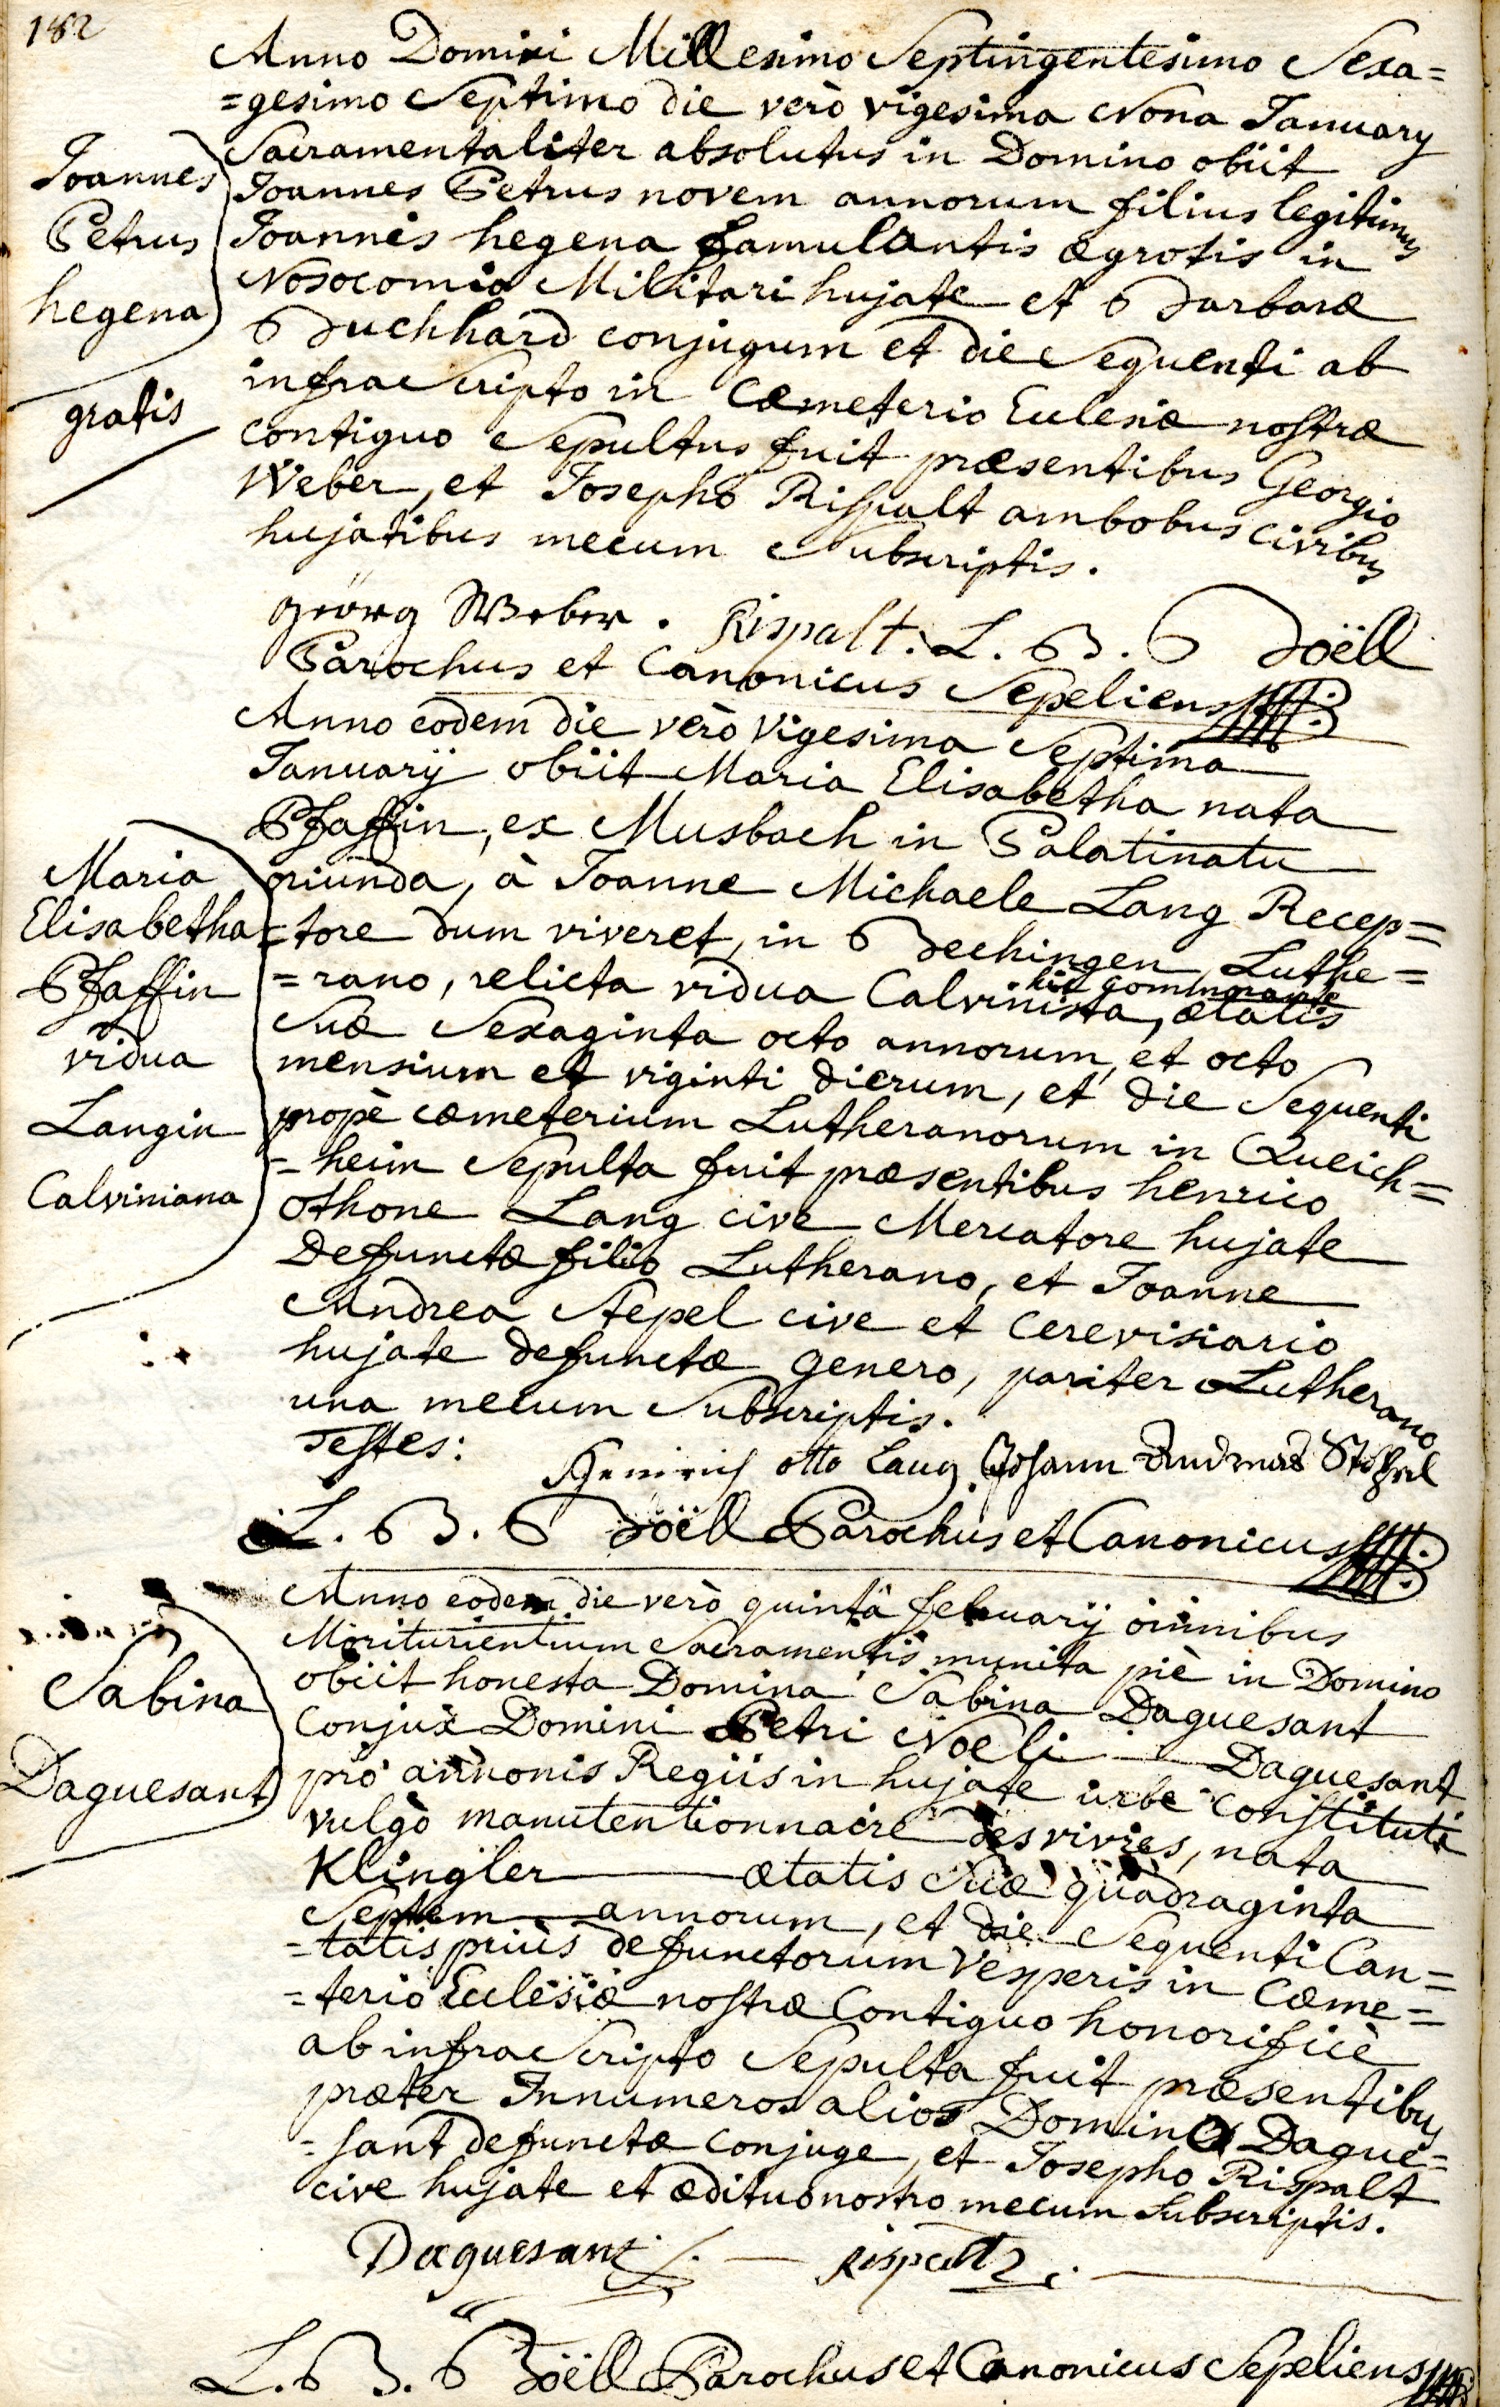 182
Anno Domini Millesimo Septingentesimo Sexa=
=gesimo Septimo die verò vigesima Nona January
Sacramentaliter absolutus in Domino obiit
Joannes Petrus novem annorum filius legitimus
Joannis hegena famulantis ægrotis in
Nosocomio Militari hujate et Barbaræ
Buchhard conjugum et die Sequenti ab
infraScripto in Cæmeterio Eulesiæ nostræ
contiguo Sepultus fuit præsentibus Georgio
Weber, et Josepho Rispalt ambobus civibus
hujatibus mecum Subscriptis.
Joannes
Petrus
hegena
gratis
Georg Weber. Rispalt. L. B. Boëll
Parochus et Canonicus Sepeliens
Anno eodem die verò vigesima Septima
Januarÿ obiit Maria Elisabetha nata
Pfaffin, ex Musbach in Palatinatu
oriunda, à Joanne Michaele Lang Recep=
=tore dum viveret, in Bechingen, Luthe=
=rano, relicta vidua Calvinista, hic commorante ætatis
Suæ Sexaginta octo annorum, et octo
mensium et viginti dierum, et die Sequenti
propè cæmeterium Lutheranorum in Queich=
=heim Sepulta fuit præsentibus henrico
Othone Lang cive Mercatore hujate
Defunctæ filio Lutherano, et Joanne
Andrea Stepel cive et Cerevisiario
hujate defunctæ genero, pariter Lutherano
una mecum Subscriptis.
Maria
Elisabetha
Pfaffin
vidua
Langin
Calviniana
Testes:
Heinrich Otto Lang Johann Andreas
L. B. Boëll Parochus et Canonicus
Anno eodem die verò quintâ februarÿ omnibus
Moriturientium Sacramentis munita piè in Domino
obiit honesta Domina Sabina Daguesant
conjux Domini Petri Noeli Daguesant
pro annonis Regiis in hujate urbe constituti
vulgò manutentionnaire des vivres, nata
Klingler ætatis Suæ quadraginta
Septem annorum, et die Sequenti Can=
=tatis priùs defunctorum Vesperis in Cæme=
=terio Eulesiæ nostræ Contiguo honorificè
ab infraScripto Sepulta fuit præsentibus
præter Innumeros alios Domino Dague=
=sant defunctæ conjuge, et Josepho Rispalt
cive hujate et ædituo nostro mecum Subscriptis.
Sabina
Daguesant
Daguesant. Rispalt
L. B. Boëll Parochus et Canonicus Sepeliens